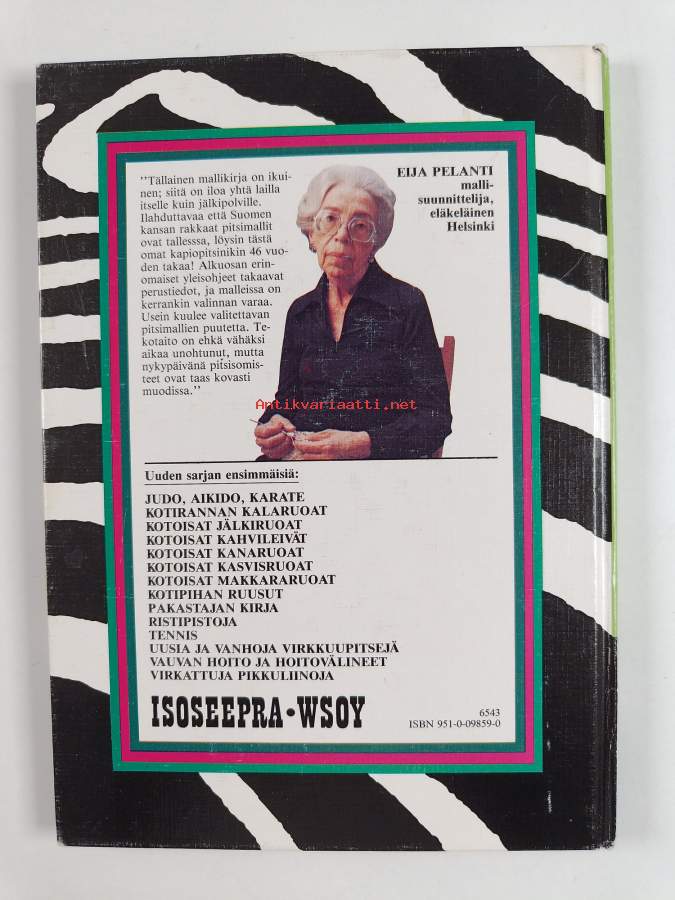 "Tällainen mallikirja on ikui-
nen; siitä on iloa yhtä lailla
itselle kuin jälkipolville.
Ilahduttavaa että Suomen
kansan rakkaat pitsimallit
ovat tallesssa, löysin tästä
omat kapiopitsinikin 46 vuo-
den takaa! Alkuosan erin-
omaiset yleisohjeet takaavat
perustiedot, ja malleissa on
kerrankin valinnan varaa.
Usein kuulee valitettavan
pitsimallien puutetta. Te-
kotaito on ehkä vähäksi
aikaa unohtunut, mutta
nykypäivänä pitsisomis-
teet ovat taas kovasti
muodissa."
EIJA PELANTI
malli-
suunnittelija,
eläkeläinen
Helsinki
Antikvariaatti.net
Uuden sarjan ensimmäisiä:
JUDO, AIKIDO, KARATE
KOTIRANNAN KALARUOAT
KOTOISAT JÄLKIRUOAT
KOTOISAT KAHVILEIVÄT
KOTOISAT KANARUOAT
KOTOISAT KASVISRUOAT
KOTOISAT MAKKARARUOAT
KOTIPIHAN RUUSUT
PAKASTAJAN KIRJA
RISTIPISTOJA
TENNIS
UUSIA JA VANHOJA VIRKKUUPITSEJÄ
VAUVAN HOITO JA HOITOVÄLINEET
VIRKATTUJA PIKKULIINOJA
ISOSEEPRA•WSOY
6543
ISBN 951-0-09859-0